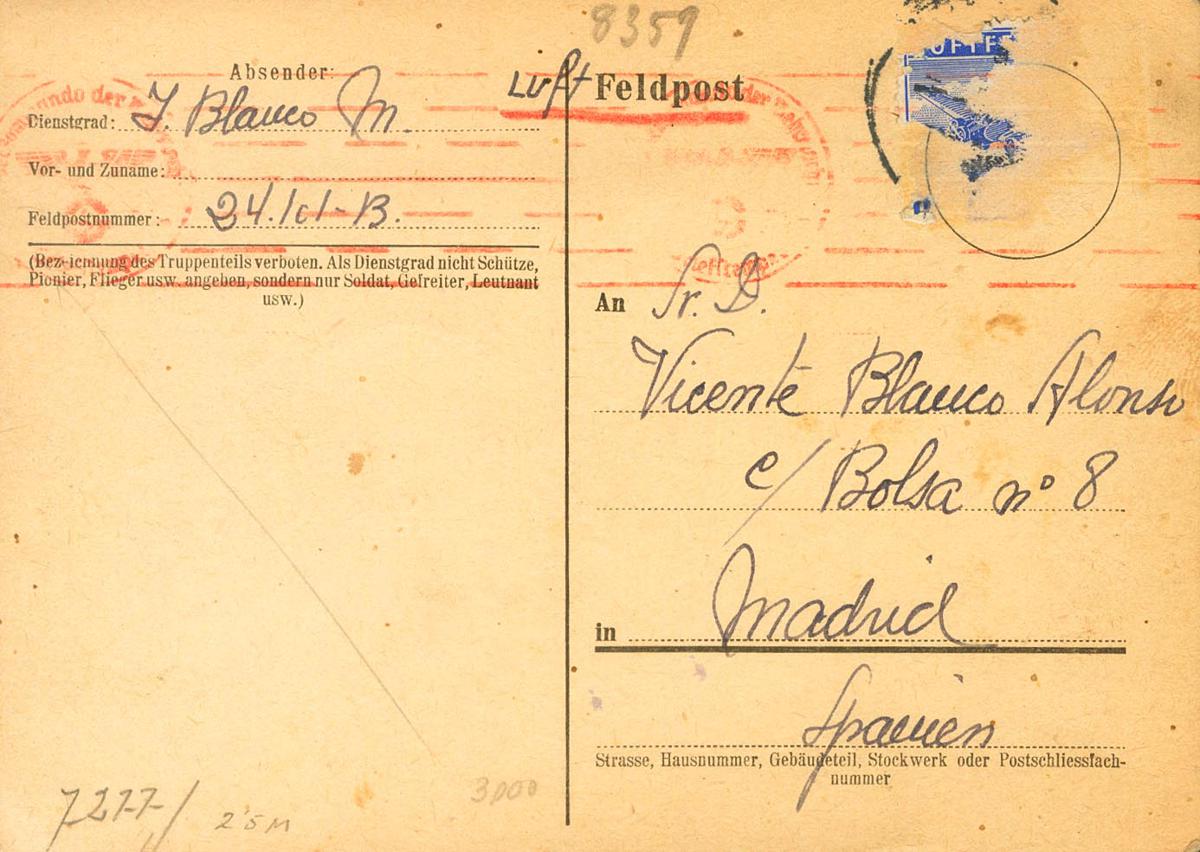 8359
Absender:
Luft Feldpost
Dienstgrad: J. Blanco M.
Vor- und Zuname:
Feldpostnummer: 24.1cl-B.
(Bezeichnung des Truppenteils verboten. Als Dienstgrad nicht Schütze,
Pionier, Flieger usw. angeben, sondern nur Soldat, Gefreiter, Leutnant
usw.)
An Sr. D.
Vicente Blanco Alonso
c/ Bolsa nº 8
in Madrid
Spanien
Strasse, Hausnummer, Gebäudeteil, Stockwerk oder Postschliessfach-
nummer
3000
7277/
2'5 M